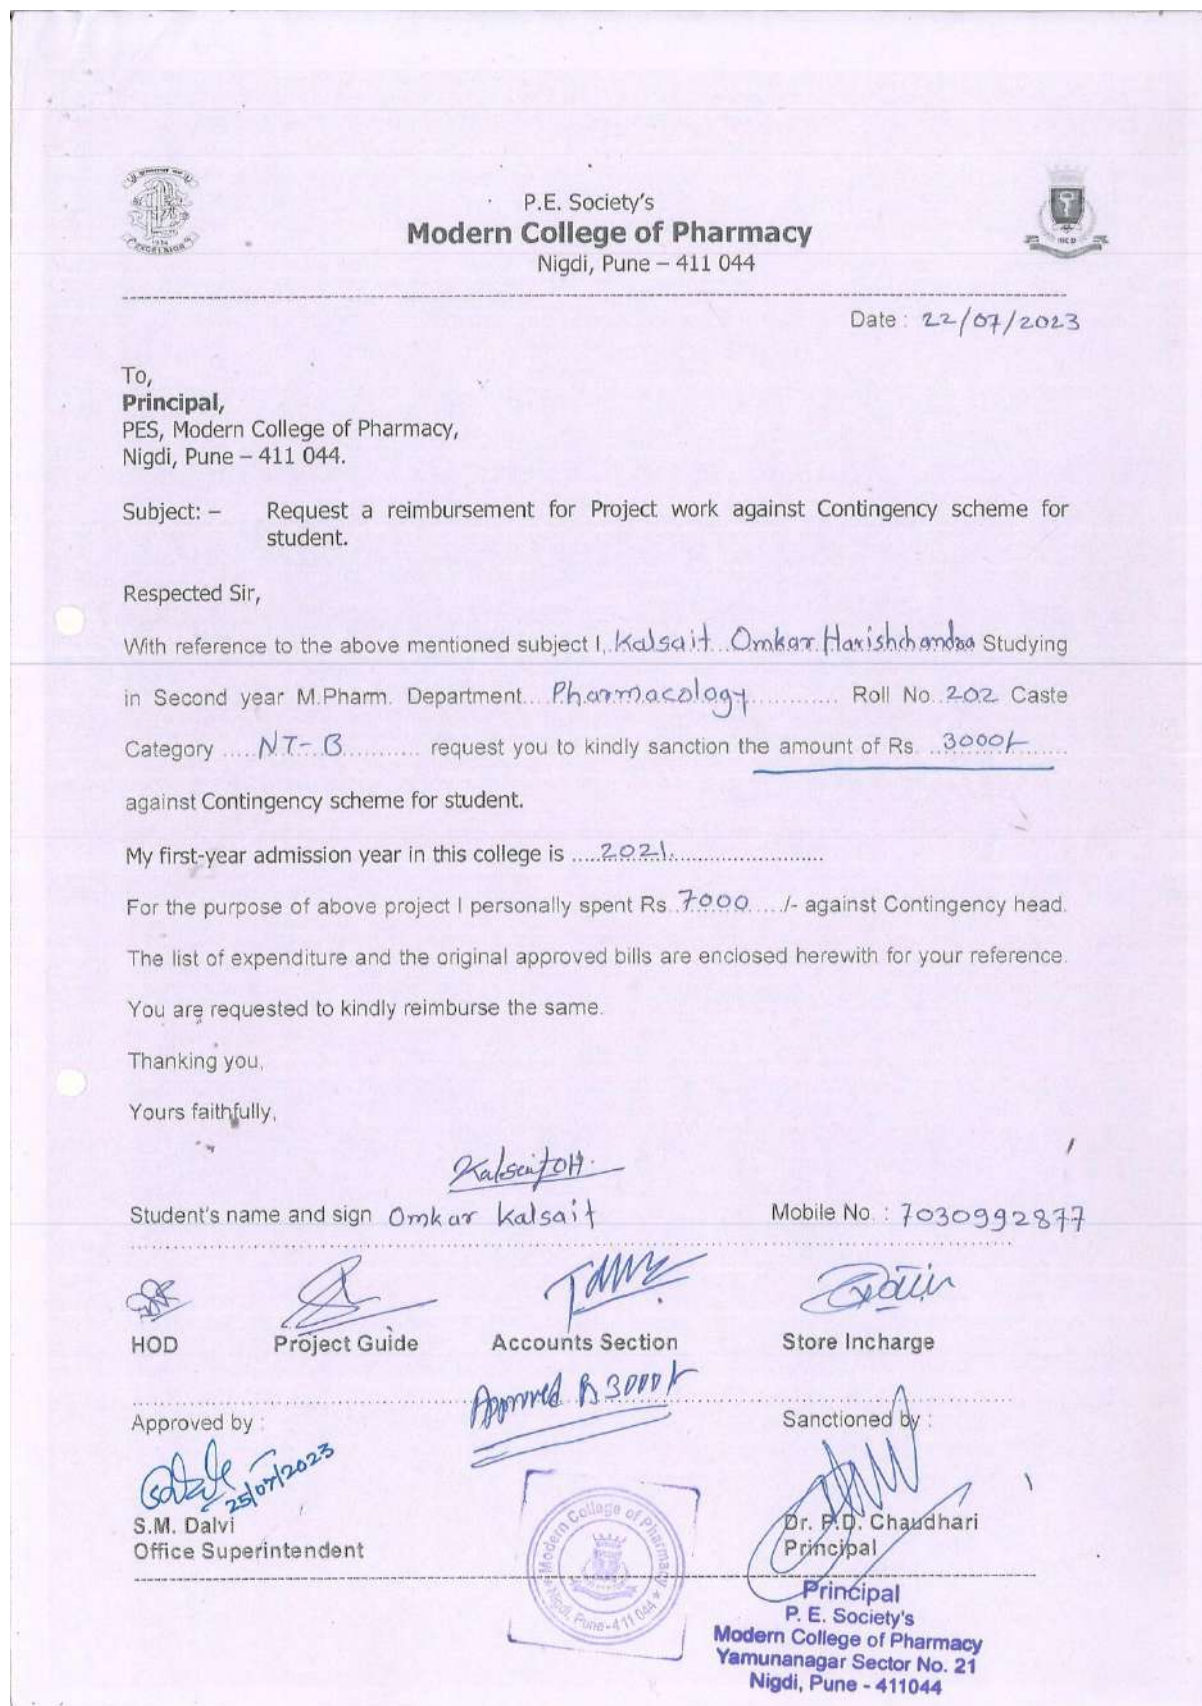 P.E. Society's
Modern College of Pharmacy
Nigdi, Pune – 411 044
EXCELSIOR
Date : 22/07/2023
To,
Principal,
PES, Modern College of Pharmacy,
Nigdi, Pune – 411 044.
Subject: – Request a reimbursement for Project work against Contingency scheme for
student.
Respected Sir,
With reference to the above mentioned subject I, Kalsait Omkar Harishchandra Studying
in Second year M.Pharm. Department.... Pharmacology............. Roll No..202 Caste
Category .....NT-B.......... request you to kindly sanction the amount of Rs. ..3000/-.......
against Contingency scheme for student.
My first-year admission year in this college is .....2021...........................
For the purpose of above project I personally spent Rs..7000...../- against Contingency head.
The list of expenditure and the original approved bills are enclosed herewith for your reference.
You are requested to kindly reimburse the same.
Thanking you,
Yours faithfully,
Kalsait OH.
Student's name and sign Omkar Kalsait Mobile No. : 7030992877
HOD Project Guide Accounts Section Store Incharge
Approved Rs 3000/-
Approved by : Sanctioned by :
25/07/2023
S.M. Dalvi Dr. P.D. Chaudhari
Office Superintendent Principal
Modern College of Pharmacy
Nigdi, Pune-411 044
Principal
P. E. Society's
Modern College of Pharmacy
Yamunanagar Sector No. 21
Nigdi, Pune - 411044